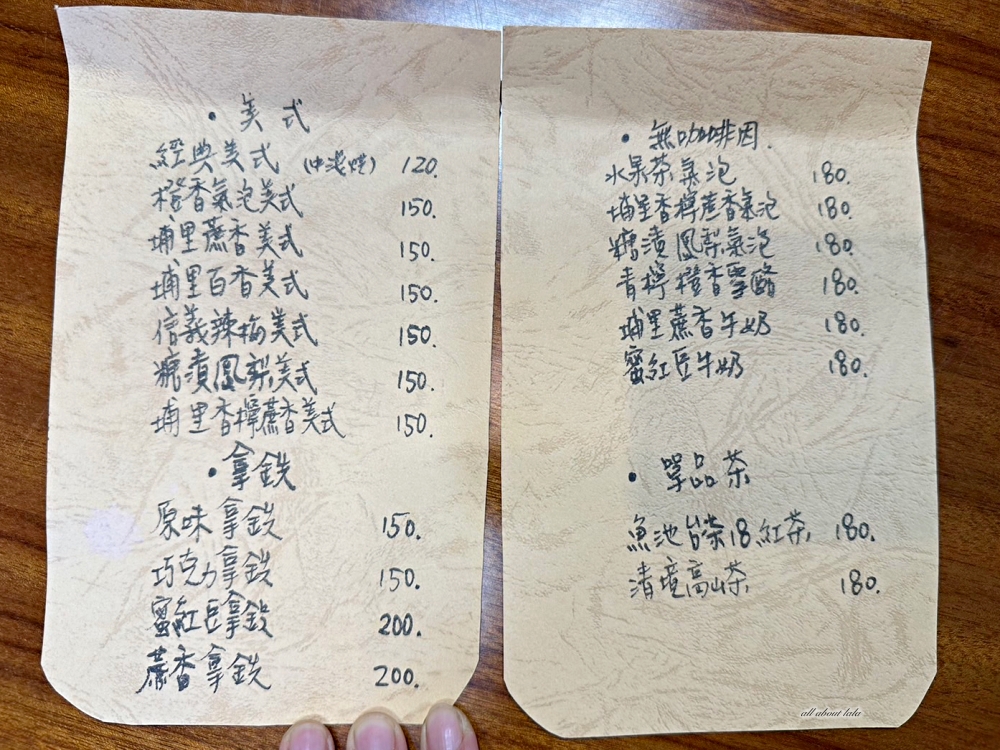 • 美式
經典美式 (中淺焙) 120.
橙香氣泡美式 150.
埔里蔗香美式 150.
埔里百香美式 150.
信義辣梅美式 150.
糖漬鳳梨美式 150.
埔里香檸蔗香美式 150.
• 拿鉄
原味拿鉄 150.
巧克力拿鉄 150.
蜜紅豆拿鉄 200.
蔗香拿鉄 200.
• 無咖啡因.
水果茶氣泡 180.
埔里香檸蔗香氣泡 180.
糖漬鳳梨氣泡 180.
青檸橙香雪酪 180.
埔里蔗香牛奶 180.
蜜紅豆牛奶 180.
• 單品茶
魚池台茶18紅茶 180.
清境高山茶 180.
all about lala